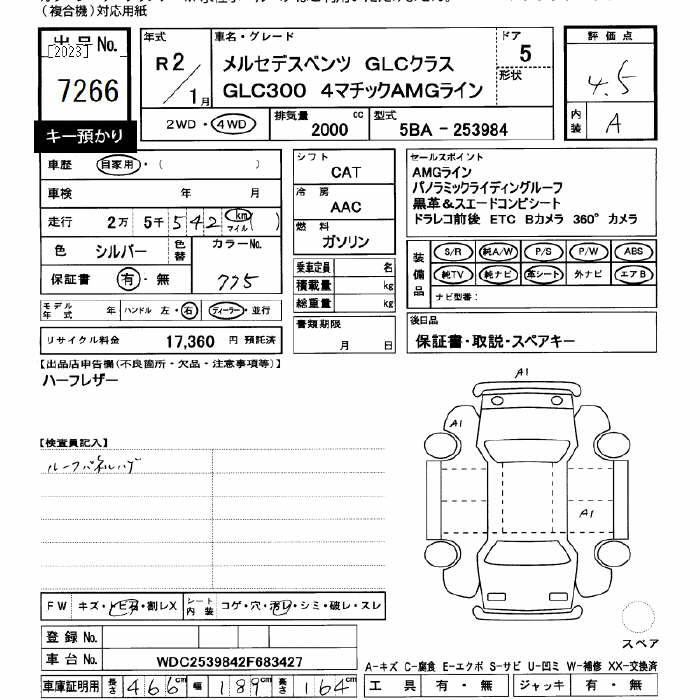 （複合機）対応用紙
出品No.
[2023]
7266
キー預かり
年式
R2／1月
車名・グレード
メルセデスベンツ GLCクラス
GLC300 4マチックAMGライン
ドア
5
形状
2WD・4WD
排気量 2000 cc
型式 5BA - 253984
評価点
4.5
内装 A
車歴 自家用・（ ）
車検 年 月
走行 2万 5千 542 km マイル（ ）
色 シルバー 色替 カラーNo.
保証書 有・無 775
モデル年式 年 ハンドル 左・右 ディーラー・並行
リサイクル料金 17,360 円 預託済
シフト
CAT
冷房
AAC
燃料
ガソリン
乗車定員 名
積載量 kg
総重量 kg
書類期限
月 日
セールスポイント
AMGライン
パノラミックライディングルーフ
黒革＆スエードコンビシート
ドラレコ前後 ETC Bカメラ 360° カメラ
装備品
S/R 純A/W P/S P/W ABS
純TV 純ナビ 革シート 外ナビ エアB
ナビ型番：
後日品
保証書・取説・スペアキー
【出品店申告欄（不良箇所・欠品・注意事項等）】
ハーフレザー
【検査員記入】
ルーフパネルハゲ
A1
A1
A1
スペア
FW キズ・トビ石・割レX シート内装 コゲ・穴・汚レ・シミ・破レ・スレ
登録No.
車台No. WDC2539842F683427
車庫証明用 長さ 466cm 幅 189cm 高さ 164cm
A-キズ C-腐食 E-エクボ S-サビ U-凹ミ W-補修 XX-交換済
工具 有・無 ジャッキ 有・無